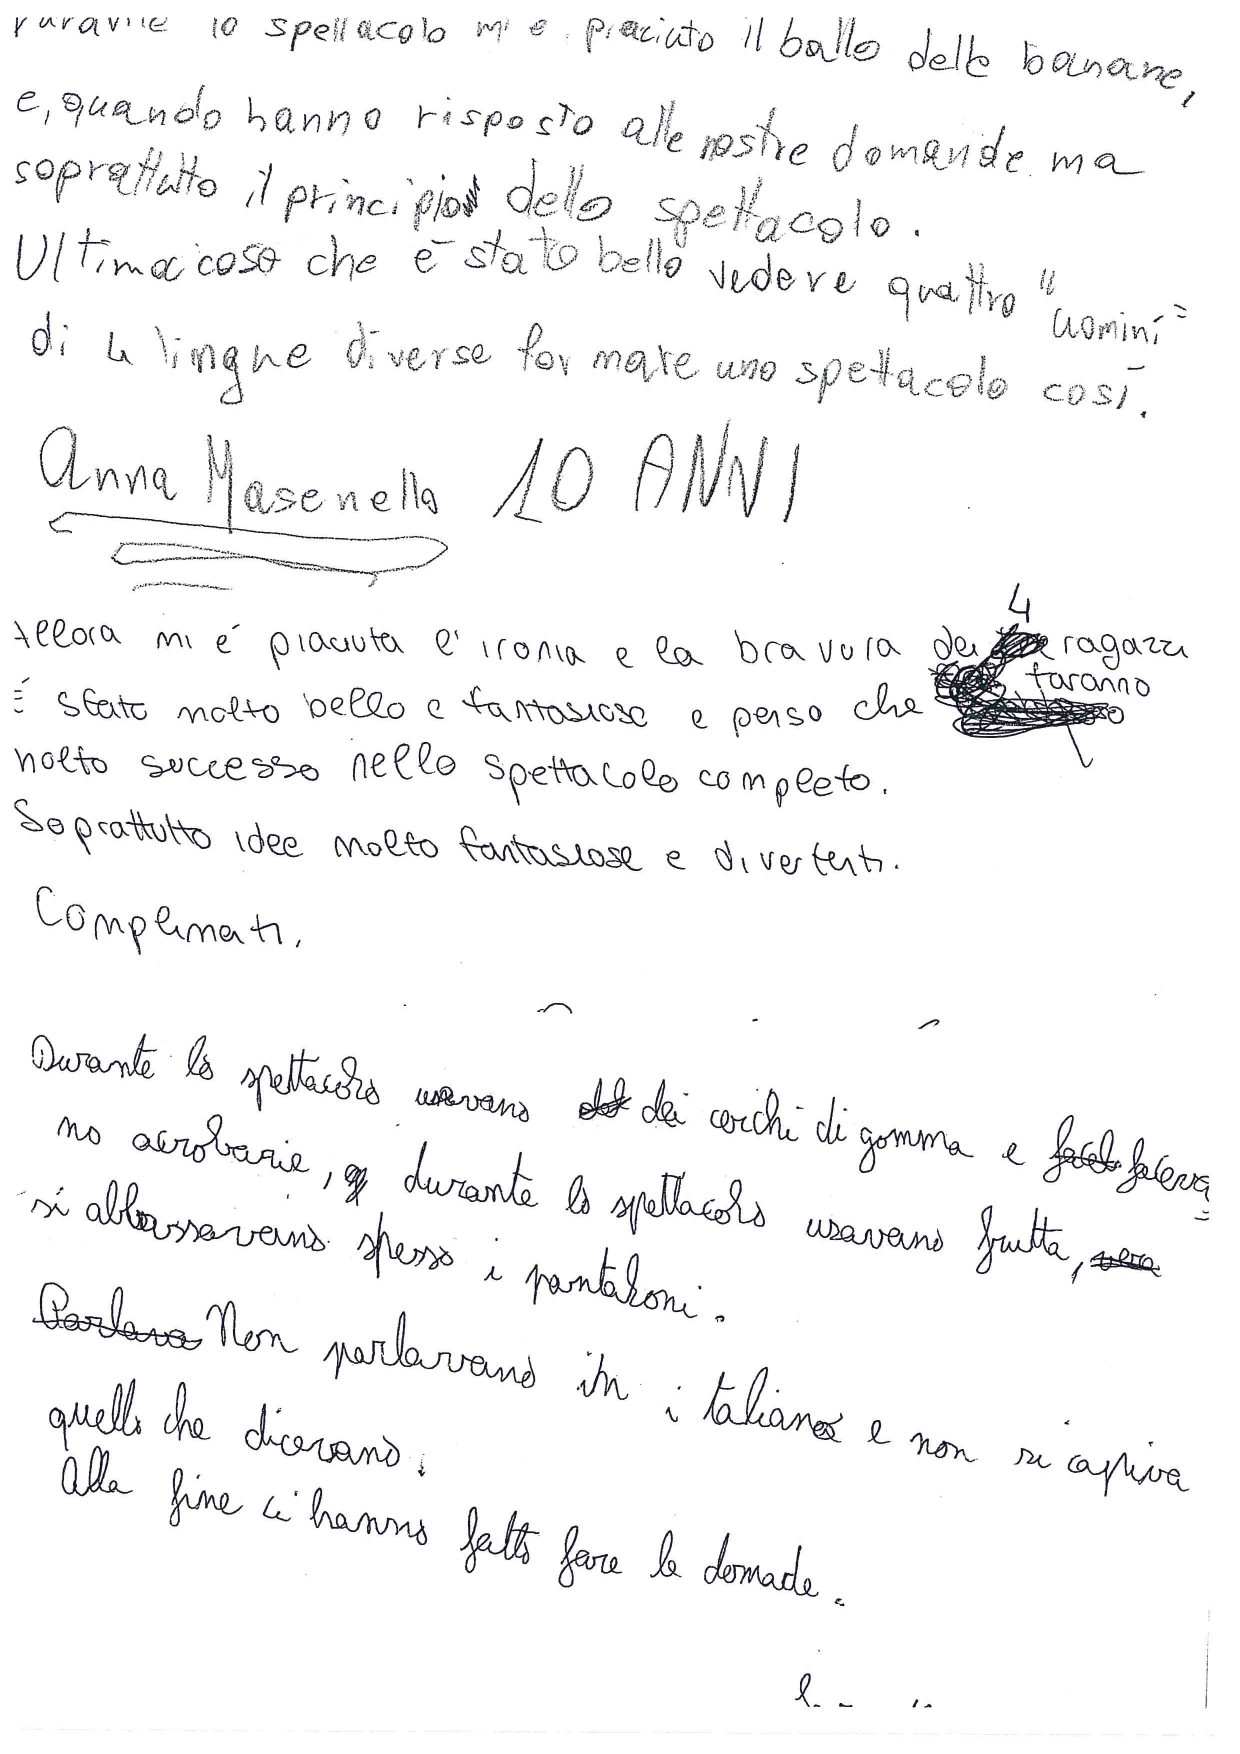 lo spettacolo mi è piaciuto il ballo delle banane,
e, quando hanno risposto alle nostre domande ma
soprattutto il principio dello spettacolo.
Ultima cosa che è stato bello vedere quattro "uomini"
di 4 lingue diverse formare uno spettacolo così.
Anna Masenello 10 ANNI
4
Allora mi é piaciuta l'ironia e la bravura dei ragazzi
É stato molto bello e fantasioso e penso che faranno
molto successo nello spettacolo completo.
Soprattutto idee molto fantasiose e divertenti.
Complimati.
Durante lo spettacolo usavano dei cerchi di gomma e faceva=
no acrobazie, durante lo spettacolo usavano frutta,
si abbassavano spesso i pantaloni.
Non parlavano in italiano e non si capiva
quello che dicevano.
Alla fine ci hanno fatto fare le domade.